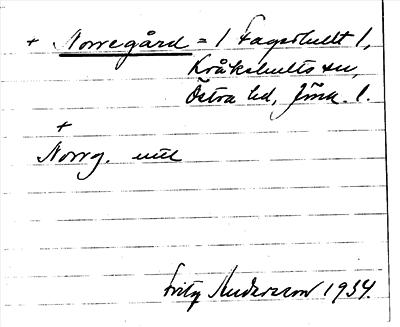 + Norregård = 1 Fagerhult 1,
Kråkshults sn,
Östra hd, Jönk. l.
+
Norrg. utl
Fritz Andersson 1934.